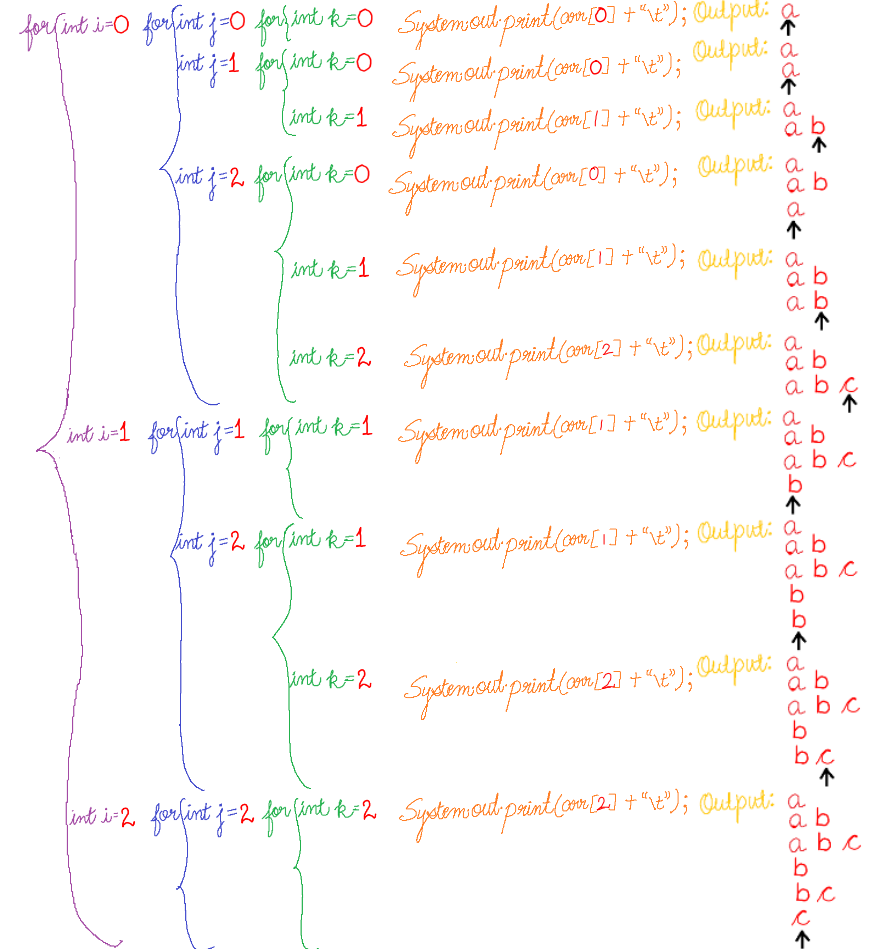 for int i=0 for int j=0 for int k=0 System.out.print(arr[0] + "\t"); Output: a
int j=1 for int k=0 System.out.print(arr[0] + "\t"); Output: a
a
int k=1 System.out.print(arr[1] + "\t"); Output: a
a b
int j=2 for int k=0 System.out.print(arr[0] + "\t"); Output: a
a b
a
int k=1 System.out.print(arr[1] + "\t"); Output: a
a b
a b
int k=2 System.out.print(arr[2] + "\t"); Output: a
a b
a b c
int i=1 for int j=1 for int k=1 System.out.print(arr[1] + "\t"); Output: a
a b
a b c
b
int j=2 for int k=1 System.out.print(arr[1] + "\t"); Output: a
a b
a b c
b
b
int k=2 System.out.print(arr[2] + "\t"); Output: a
a b
a b c
b
b c
int i=2 for int j=2 for int k=2 System.out.print(arr[2] + "\t"); Output: a
a b
a b c
b
b c
c